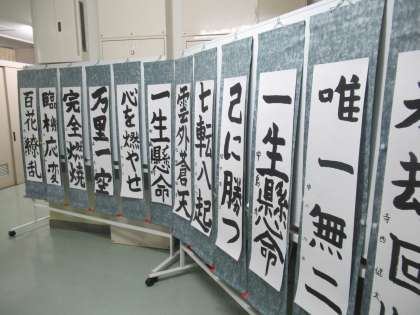 百花繚乱
臨機応変
完全燃焼
万里一空
心を燃やせ
一生懸命
雲外蒼天
七転八起
己に勝つ
一生懸命
唯一無二